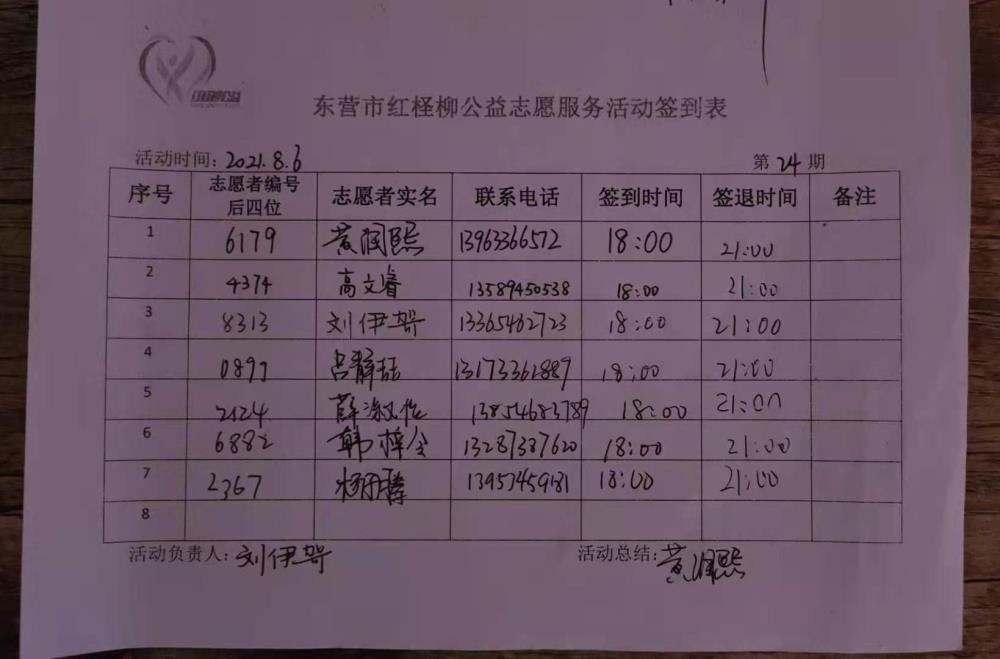 红柽柳公益
东营市红柽柳公益志愿服务活动签到表
活动时间：2021.8.6 第 24 期
序号 志愿者编号后四位 志愿者实名 联系电话 签到时间 签退时间 备注
1 6179 黄润熙 13963366572 18:00 21:00
2 4374 高文睿 13589450538 18:00 21:00
3 8313 刘伊哿 13365462723 18:00 21:00
4 0897 吕静钰 13173361889 18:00 21:00
5 2124 薛淑悦 13854683789 18:00 21:00
6 6882 韩梓全 13287387620 18:00 21:00
7 2367 杨雨腾 18:00 21:00
8
活动负责人：刘伊哿 活动总结：黄润熙